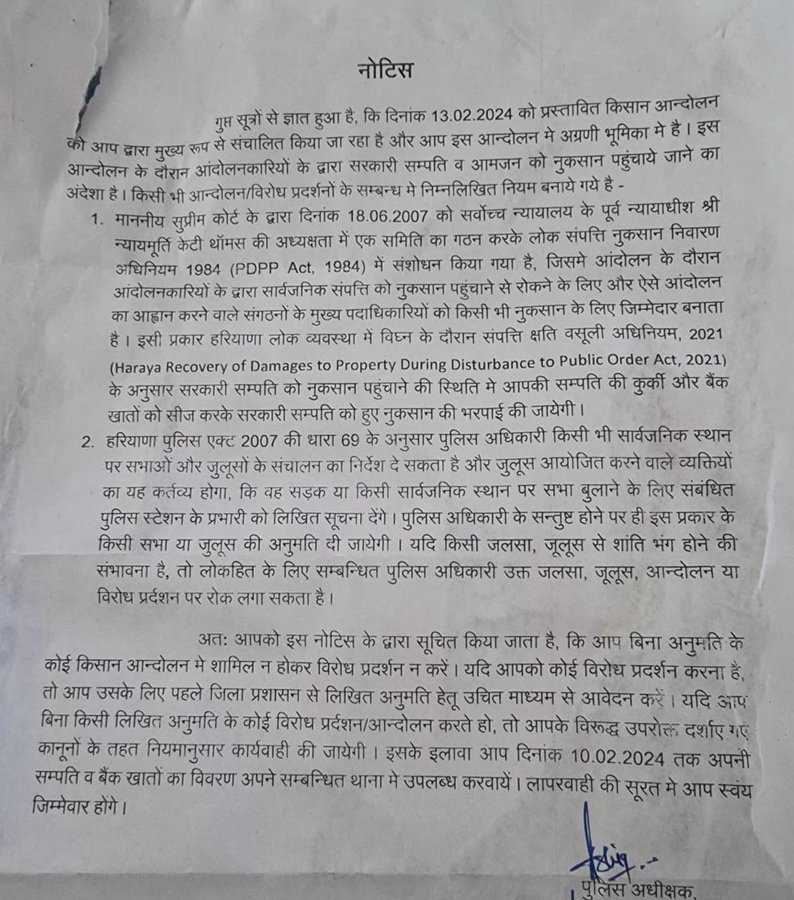 नोटिस
गुप्त सूत्रों से ज्ञात हुआ है, कि दिनांक 13.02.2024 को प्रस्तावित किसान आन्दोलन
को आप द्वारा मुख्य रूप से संचालित किया जा रहा है और आप इस आन्दोलन मे अग्रणी भूमिका मे है। इस
आन्दोलन के दौरान आंदोलनकारियों के द्वारा सरकारी सम्पति व आमजन को नुकसान पहुंचाये जाने का
अंदेशा है। किसी भी आन्दोलन/विरोध प्रदर्शनों के सम्बन्ध मे निम्नलिखित नियम बनाये गये है -
1. माननीय सुप्रीम कोर्ट के द्वारा दिनांक 18.06.2007 को सर्वोच्च न्यायालय के पूर्व न्यायाधीश श्री
न्यायमूर्ति केटी थॉमस की अध्यक्षता में एक समिति का गठन करके लोक संपत्ति नुकसान निवारण
अधिनियम 1984 (PDPP Act, 1984) में संशोधन किया गया है, जिसमे आंदोलन के दौरान
आंदोलनकारियों के द्वारा सार्वजनिक संपत्ति को नुकसान पहुंचाने से रोकने के लिए और ऐसे आंदोलन
का आह्वान करने वाले संगठनों के मुख्य पदाधिकारियों को किसी भी नुकसान के लिए जिम्मेदार बनाता
है। इसी प्रकार हरियाणा लोक व्यवस्था में विघ्न के दौरान संपत्ति क्षति वसूली अधिनियम, 2021
(Haraya Recovery of Damages to Property During Disturbance to Public Order Act, 2021)
के अनुसार सरकारी सम्पति को नुकसान पहुंचाने की स्थिति मे आपकी सम्पति की कुर्की और बैंक
खातों को सीज करके सरकारी सम्पति को हुए नुकसान की भरपाई की जायेगी।
2. हरियाणा पुलिस एक्ट 2007 की धारा 69 के अनुसार पुलिस अधिकारी किसी भी सार्वजनिक स्थान
पर सभाओं और जुलूसों के संचालन का निर्देश दे सकता है और जुलूस आयोजित करने वाले व्यक्तियों
का यह कर्तव्य होगा, कि वह सड़क या किसी सार्वजनिक स्थान पर सभा बुलाने के लिए संबंधित
पुलिस स्टेशन के प्रभारी को लिखित सूचना देंगे। पुलिस अधिकारी के सन्तुष्ट होने पर ही इस प्रकार के
किसी सभा या जुलूस की अनुमति दी जायेगी । यदि किसी जलसा, जूलूस से शांति भंग होने की
संभावना है, तो लोकहित के लिए सम्बन्धित पुलिस अधिकारी उक्त जलसा, जूलूस, आन्दोलन या
विरोध प्रर्दशन पर रोक लगा सकता है।
अतः आपको इस नोटिस के द्वारा सूचित किया जाता है, कि आप बिना अनुमति के
कोई किसान आन्दोलन मे शामिल न होकर विरोध प्रदर्शन न करें। यदि आपको कोई विरोध प्रदर्शन करना है,
तो आप उसके लिए पहले जिला प्रशासन से लिखित अनुमति हेतू उचित माध्यम से आवेदन करें। यदि आप
बिना किसी लिखित अनुमति के कोई विरोध प्रर्दशन/आन्दोलन करते हो, तो आपके विरूद्ध उपरोक्त दर्शाए गए
कानूनों के तहत नियमानुसार कार्यवाही की जायेगी । इसके इलावा आप दिनांक 10.02.2024 तक अपनी
सम्पति व बैंक खातों का विवरण अपने सम्बन्धित थाना मे उपलब्ध करवायें। लापरवाही की सूरत मे आप स्वंय
जिम्मेवार होंगे।
पुलिस अधीक्षक,